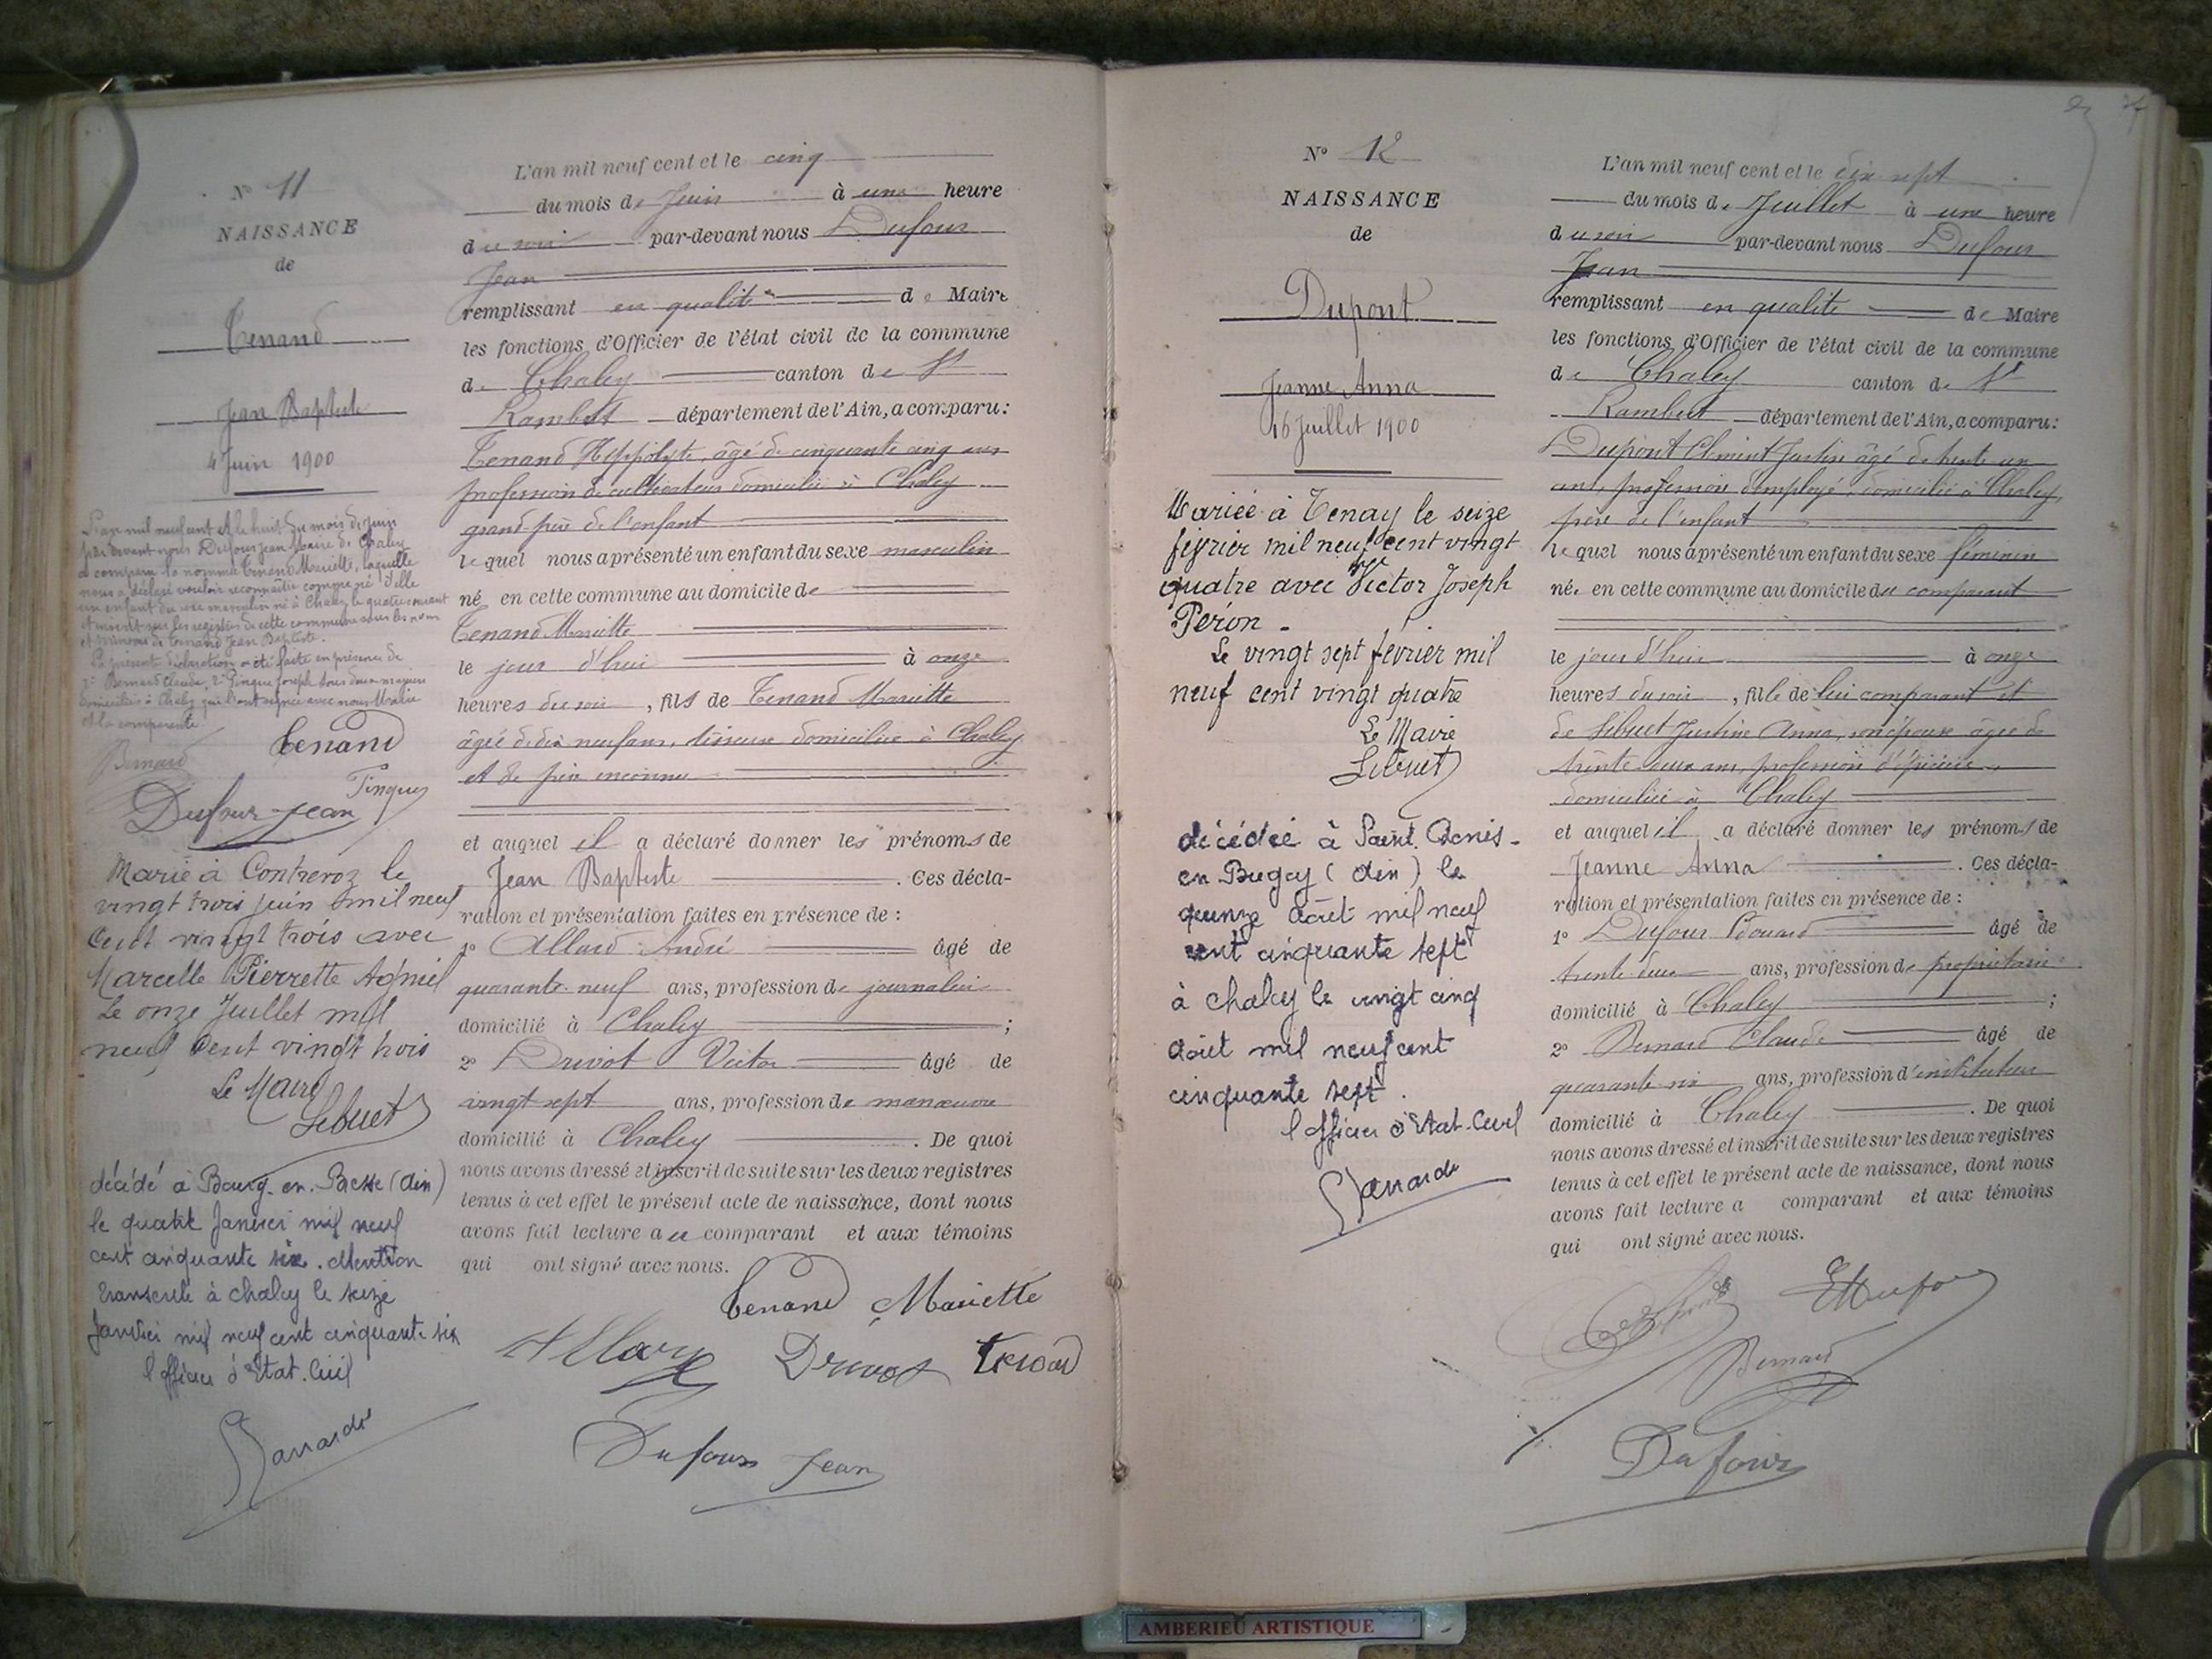 N° 11
NAISSANCE
de
Tenand
Jean Baptiste
4 Juin 1900
L'an mil neuf cent et le huit du mois de Juin
par devant nous Dufour Jean Maire de Chaley
a comparu la nommée Tenand Mariette, laquelle
nous a déclaré vouloir reconnaître comme né d'elle
un enfant du sexe masculin né à Chaley le quatre courant
et inscrit sur les registres de cette commune sous les nom
et prénoms de Tenand Jean Baptiste.
La présente déclaration a été faite en présence de
1° Bernard Claude, 2° Pingue Joseph tous deux majeurs
domiciliés à Chaley qui l'ont signée avec nous Maire
et la comparante
Tenand
Bernard
Pingue
Dufour Jean
Marié à Contrevoz le
vingt trois juin mil neuf
cent vingt trois avec
Marcelle Pierrette Agniel
Le onze Juillet mil
neuf cent vingt trois
Le Maire
Lebuet
décédé à Bourg-en-Bresse (Ain)
le quatre Janvier mil neuf
cent cinquante six. Mention
transcrite à Chaley le seize
Janvier mil neuf cent cinquante six
l'officier d'Etat-Civil
L'an mil neuf cent et le cinq
du mois de Juin à une heure
du soir par-devant nous Dufour
Jean
remplissant en qualité de Maire
les fonctions d'Officier de l'état civil de la commune
de Chaley canton de St
Rambert département de l'Ain, a comparu:
Tenand Hippolyte, âgé de cinquante cinq ans
profession de cultivateur domicilié à Chaley
grand-père de l'enfant
lequel nous a présenté un enfant du sexe masculin
né en cette commune au domicile de
Tenand Mariette
le jour d'hui à onze
heures du soir, fils de Tenand Mariette
âgée de dix neuf ans, domiciliée à Chaley
et de père inconnu
et auquel il a déclaré donner les prénoms de
Jean Baptiste . Ces décla-
ration et présentation faites en présence de :
1° Allard André âgé de
quarante-neuf ans, profession de journalier
domicilié à Chaley ;
2° Drivot Victor âgé de
vingt sept ans, profession de manœuvre
domicilié à Chaley . De quoi
nous avons dressé et inscrit de suite sur les deux registres
tenus à cet effet le présent acte de naissance, dont nous
avons fait lecture au comparant et aux témoins
qui ont signé avec nous.
Tenand Mariette
Allard Drivot Tenand
Dufour Jean
N° 12
NAISSANCE
de
Dupont
Jeanne Anna
16 Juillet 1900
Mariée à Tenay le seize
février mil neuf cent vingt
quatre avec Victor Joseph
Péron -
Le vingt sept février mil
neuf cent vingt quatre
Le Maire
Lebuet
décédée à Saint Denis-
en Bugey (Ain) le
quinze Août mil neuf
cent cinquante sept
à Chaley le vingt cinq
Août mil neuf cent
cinquante sept.
l'officier d'Etat-Civil
L'an mil neuf cent et le dix sept
du mois de Juillet à une heure
du soir par-devant nous Dufour
Jean
remplissant en qualité de Maire
les fonctions d'Officier de l'état civil de la commune
de Chaley canton de St
Rambert département de l'Ain, a comparu:
Dupont Clément Justin âgé de trente un
ans, profession d'employé, domicilié à Chaley,
père de l'enfant
lequel nous a présenté un enfant du sexe féminin
née en cette commune au domicile du comparant
le jour d'hier à onze
heures du soir, fille de lui comparant et
de Lebuet Justine Anna, son épouse âgée de
trente deux ans, profession d'épicière
domiciliée à Chaley
et auquel il a déclaré donner les prénoms de
Jeanne Anna . Ces décla-
ration et présentation faites en présence de :
1° Dufour Edouard âgé de
trente deux ans, profession de propriétaire
domicilié à Chaley ;
2° Bernard Claude âgé de
quarante six ans, profession d'instituteur
domicilié à Chaley . De quoi
nous avons dressé et inscrit de suite sur les deux registres
tenus à cet effet le présent acte de naissance, dont nous
avons fait lecture a comparant et aux témoins
qui ont signé avec nous.
Bernard
Dufour
AMBERIEU ARTISTIQUE